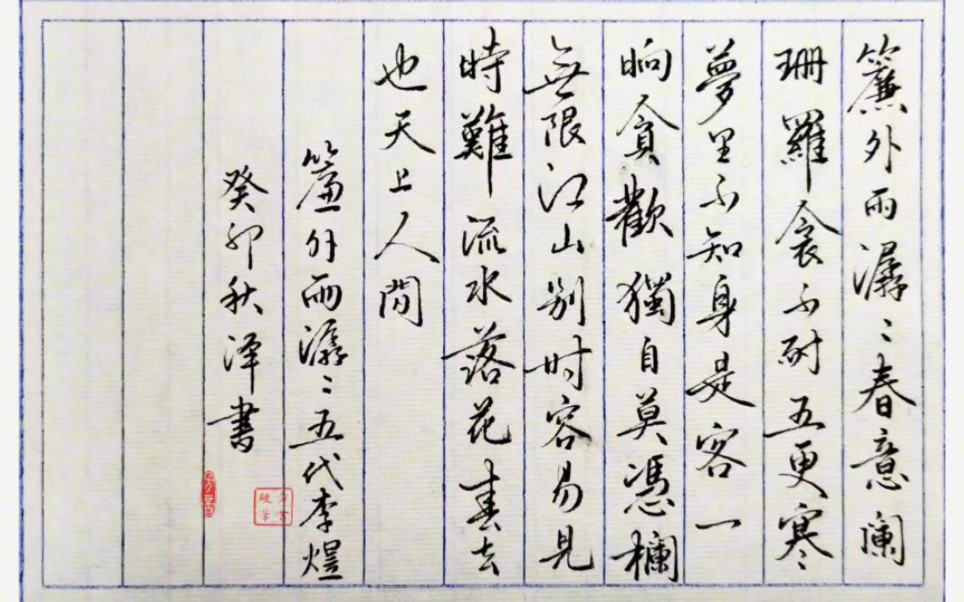 簾外雨潺〻春意闌
珊羅衾不耐五更寒
夢里不知身是客一
晌貪歡獨自莫憑欄
無限江山别时容易見
時難流水落花春去
也天上人間
簾外雨潺〻五代李煜
癸卯秋泽書